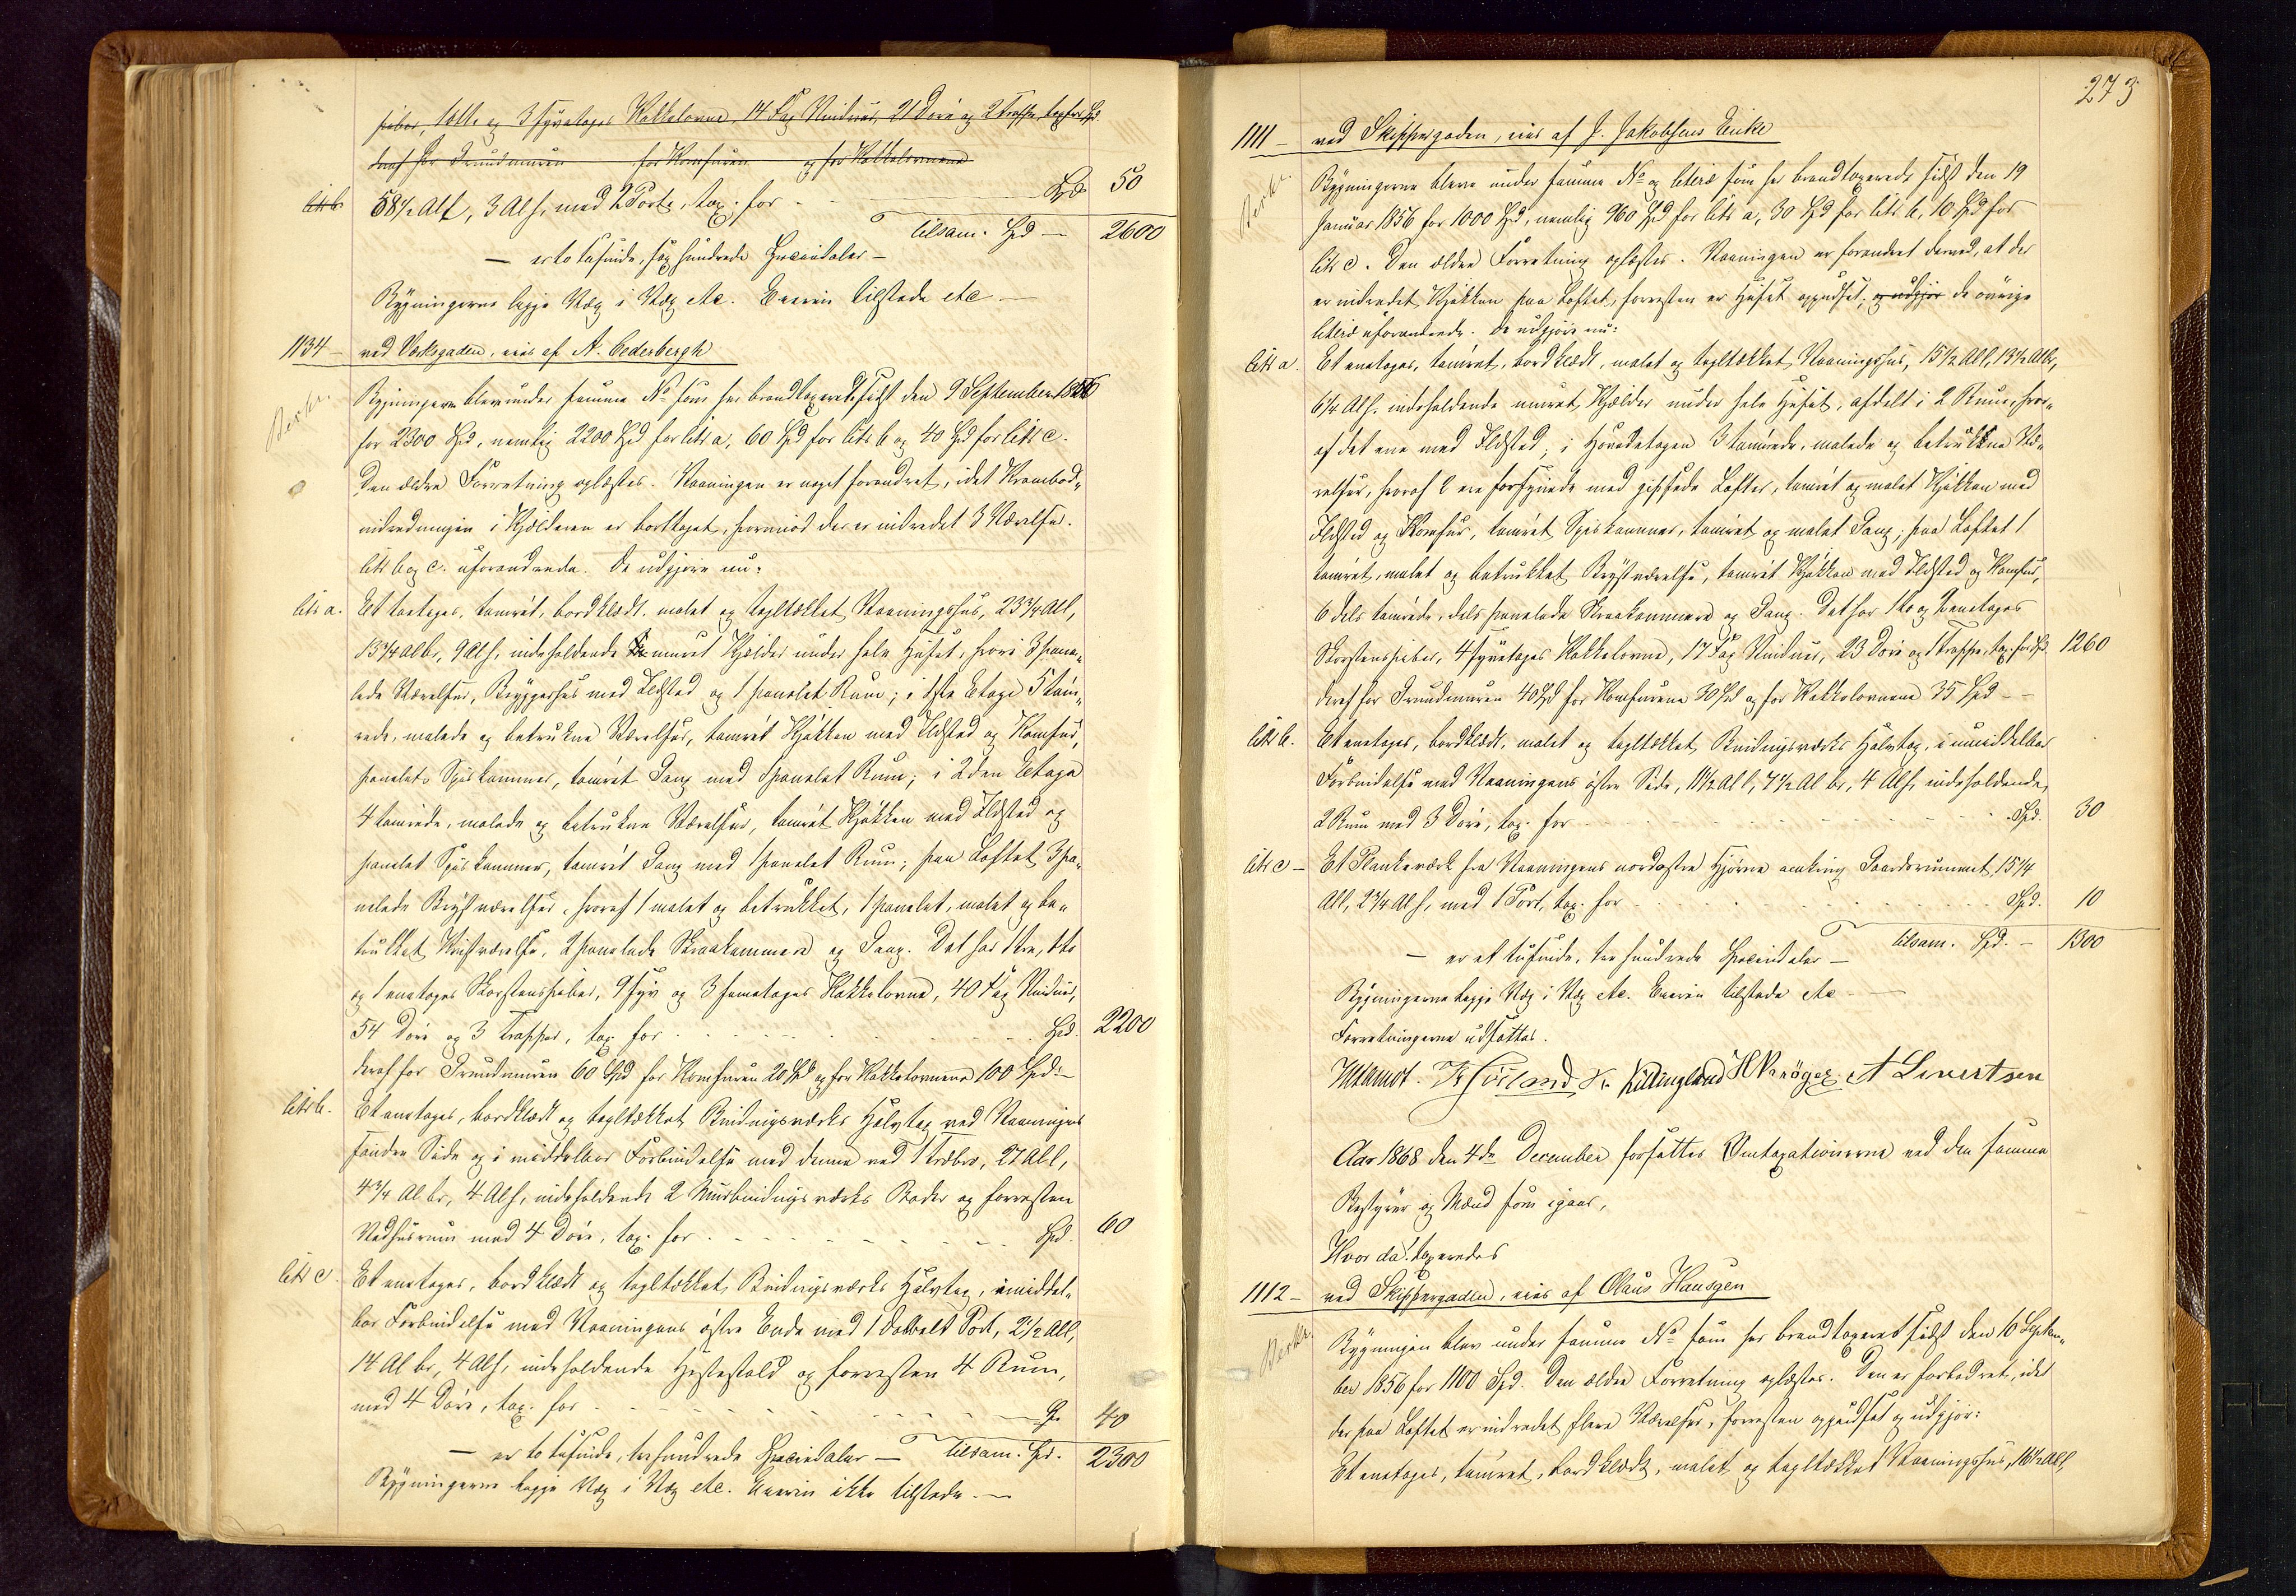 piber, 1 etl. og 3 fyretages Kakkelovne, 14 Fag Vinduer, 21 Döre og 2 Trappe, tax for Spd.
deraf for Grundmuren for Komfuren og for Kakkelovnene
litr b. 58½ Al l, 3 Al h, med 2 Porte, tax. for - Spd 50
tilsam. Spd — 2600
— er to tusinde, sex hundrede Speciedaler —
Bygningerne ligge Væg i Væg etc. Eieren tilstede etc. —
1134 — ved Værksgaden, eies af A. Cederbergh
Berkr.
Bygningerne blev under samme No som her brandtaxerede sidst den 9 September 1856
for 2300 Spd, nemlig 2200 Spd for litr a, 60 Spd for litr b og 40 Spd for litr c.
Den ældre Forretning oplæstes. Vaaningen er noget forandret, idet Krambod„
indredningen i Kjælderen er borttaget, hvorimod der er indredet 3 Værelser.
litr b og c. uforandrede. De udgjöre nu:
litr a. Et toetages, tömret, bordklædt, malet og tegltækket Vaaningshus, 23¾ Al l,
13¾ Al br, 9 Al h, indeholdende muret Kjælder under hele Huset, hvori 3 pane„
lede Værelser, Bryggerhus med Ildsted og 1 panelet Rum; i 1ste Etage 5 töm„
rede, malede og betrukne Værelser, tömret Kjökken med Ildsted og Komfur,
panelet Spiskammer, tömret Gang med 1 panelet Rum; i 2den Etage
4 tömrede, malede og betrukne Værelser, tömret Kjökken med Ildsted og
panelet Spiskammer, tömret Gang med 1 panelet Rum; paa Loftet 3 pa„
nelede Brystværelser, hvoraf 1 malet og betrukket, 1 panelet, malet og be„
trukket Kvistværelse, 2 panelede Skraakammere og Gang. Det har 1 tre, 1 to
og 1 enetages Skorstenspiber, 9 fyr og 3 femetages Kakkelovne, 40 Fag Vinduer,
54 Döre og 3 Trapper, tax for - Spd. 2200
deraf for Grundmuren 60 Spd for Komfuren 20 Spd og for Kakkelovnene 100 Spd. —
litr b. Et enetages, bordklædt og tegltækket Bindingsværks Halvtag ved Vaaningens
söndre Side og i middelbar Forbindelse med denne ved 1 Træbro, 27 Al l,
4¾ Al br, 4 Al h, indeholdende 2 Murbindingsværks Boder og forresten
Vedhusrum med 4 Döre, tax. for - Spd. 60
litr c. Et enetages, bordklædt og tegltækket Bindingsværks Halvtag, i middel„
bar Forbindelse med Vaaningens östre Ende med 1 dobbelt Port, 21½ Al l,
14 Al br, 4 Al h, indeholdende Hestestald og forresten 4 Rum,
med 4 Döre, tax. for - 40
— er to tusinde, trehundrede Speciedaler — tilsam. Spd. 2300
Bygningerne ligge Væg i Væg etc. Eieren ikke tilstede. —
273
1111 — ved Skippergaden, eies af J. Jakobsens Enke
Berkr.
Bygningerne bleve under samme No og literæ som her brandtaxerede sidst den 19
Januar 1856 for 1000 Spd, nemlig 960 Spd for litr a, 30 Spd for litr b, 10 Spd for
litr c. Den ældre Forretning oplæstes. Vaaningen er forandret derved, at der
er indredet Kjökken paa Loftet, forresten er Huset oppudset, og udgjör de övrige
literæ uforandrede. De udgjöre nu:
litr a. Et enetages, tömret, bordklædt, malet og tegltækket Vaaningshus, 15½ Al l, 13½ Al br,
6¼ Al h, indeholdende muret Kjælder under hele Huset, afdelt i 2 Rum, hvor„
af det ene med Ildsted; i Hovedetagen 3 tömrede, malede og betrukkne Væ„
relser, hvoraf 2 ere forsynede med gipsede Lofter, tömret og malet Kjökken med
Ildsted og Komfur, tömret Spiskammer, tömret og malet Gang; paa Loftet 1
tömret, malet og betrukket Brystværelse, tömret Kjökken med Ildsted og Komfur,
6 dels tömrede, dels panelede Skraakammere og Gang. Det har 1 to og 1 enetages
Skorstenspiber, 4 fyretages Kakkelovne, 17 Fag Vinduer, 23 Döre og 1 Trappe, tax. for Spd. 1260
deraf for Grundmuren 40 Spd for Komfurene 30 Spd og for Kakkelovnene 35 Spd —
litr b. Et enetages, bordklædt, malet og tegltækket Bindingsværks Halvtag, i umiddelbar
Forbindelse med Vaaningens östre Side, 11½ Al l, 7½ Al br, 4 Al h, indeholdende
2 Rum med 3 Döre, tax. for - Spd. 30
litr c — Et Plankeværk fra Vaaningens nordöstre Hjörne omkring Gaardsrummet, 15¼
Al l, 2¾ Al h, med 1 Port, tax. for - Spd. 10
tilsam. Spd. — 1300
— er et tusinde, tre hundrede Speciedaler —
Bygningerne ligge Væg i Væg etc. Eieren tilstede etc —
Forretningerne udsattes.
Killengland H Kröger A Sivertsen
Aar 1868 den 4de December forsattes Omtaxationerne ved den samme
Bestyrer og Mænd som igaar,
Hvor da taxeredes
1112 — ved Skippergaden, eies af Olaus Hansgen
Berkr.
Bygningen blev under samme No som her brandtaxeret sidst den 16 Septem„
ber 1856 for 1100 Spd. Den ældre Forretning oplæstes. Den er forbedret, idet
der paa Loftet er indredet flere Værelser, forresten oppudset og udgjör:
Et enetages, tömret, bordklædt, malet og tegltækket Vaaningshus, 16½ Al l,